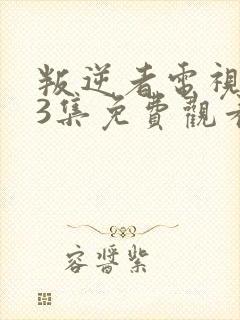 叛逆者電視
3集免費觀看
容醬紫